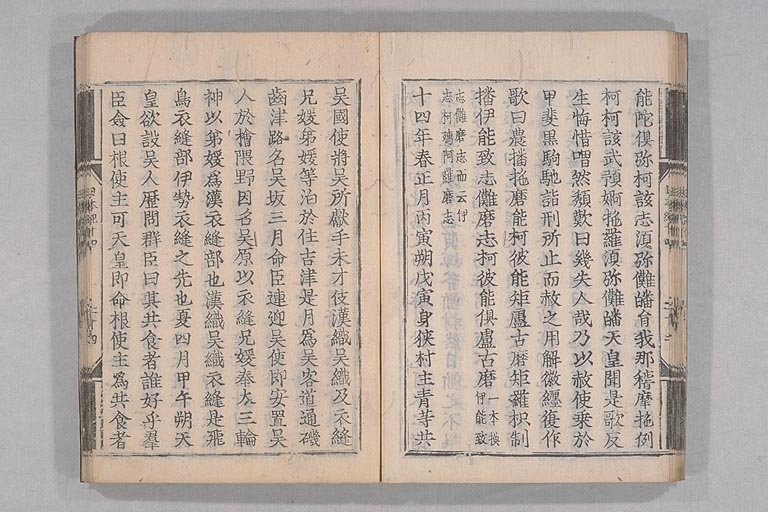 能陀倶弥柯該志湏弥儺皤旨我那稽摩拖例
柯柯該武預婀拖羅湏弥儺皤天皇聞是歌反
生悔惜喟然頽歎曰幾失人哉乃以赦使乗於
甲斐黒駒馳詣刑所止而赦之用解徽纆復作
歌曰農播拖磨能柯彼能矩盧古磨矩羅枳制
播伊能致志儺磨志柯彼能倶盧古磨 一本换伊能致
志儺磨志而云伊志柯孺阿羅磨志
十四年春正月丙寅朔戊寅身狭村主青等共
吴國使將吴所獻手末才伎漢織吴織及衣縫
兄媛弟媛等泊於住吉津是月爲吴客道通磯
齒津路名吴坂三月命臣連迎吴使即安置吴
人於檜隈野因名吴原以衣縫兄媛奉大三輪
神以弟媛爲漢衣縫部也漢織吴織衣縫是飛
鳥衣縫部伊勢衣縫之先也夏四月甲午朔天
皇欲設吴人歷問群臣曰其共食者誰好乎羣
臣僉曰根使主可天皇即命根使主爲共食者